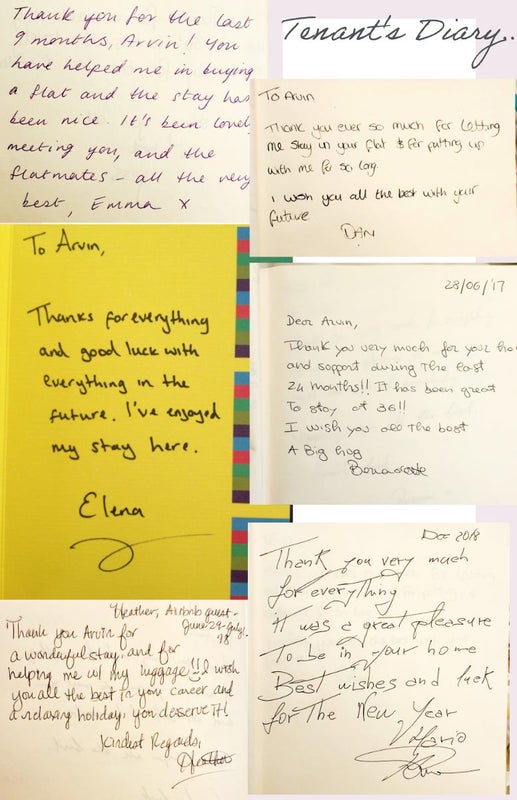 Thank you for the last
9 months, Arvin! You
have helped me in buying
a flat and the stay has
been nice. It's been lovel
meeting you, and the
flatmates - all the very
best, Emma X
Tenant's Diary.
To Arvin
Thank you ever so much for letting
me stay in your flat & for putting up
with me for so long
I wish you all the best with your
future
DAN
To Arvin,
Thanks for everything
and good luck with
everything in the
future. I've enjoyed
my stay here.
Elena
28/06/17
Dear Arvin,
Thank you very much for your ho
and support during the last
24 months!! It has been great
To stay at 36!!
I wish you all the best
A Big hug
Heather, Airbnb guest -
June 29-July 1
'18
Thank you Arvin for
a wonderful stay, and for
helping me w/ my luggage!! I wish
you all the best in your career and
a relaxing holiday, you deserve it!
Kindest Regards,
Heather
Dec 2018
Thank you very much
for everything
it was a great pleasure
To be in your home
Best wishes and luck
for the New Year
Mario